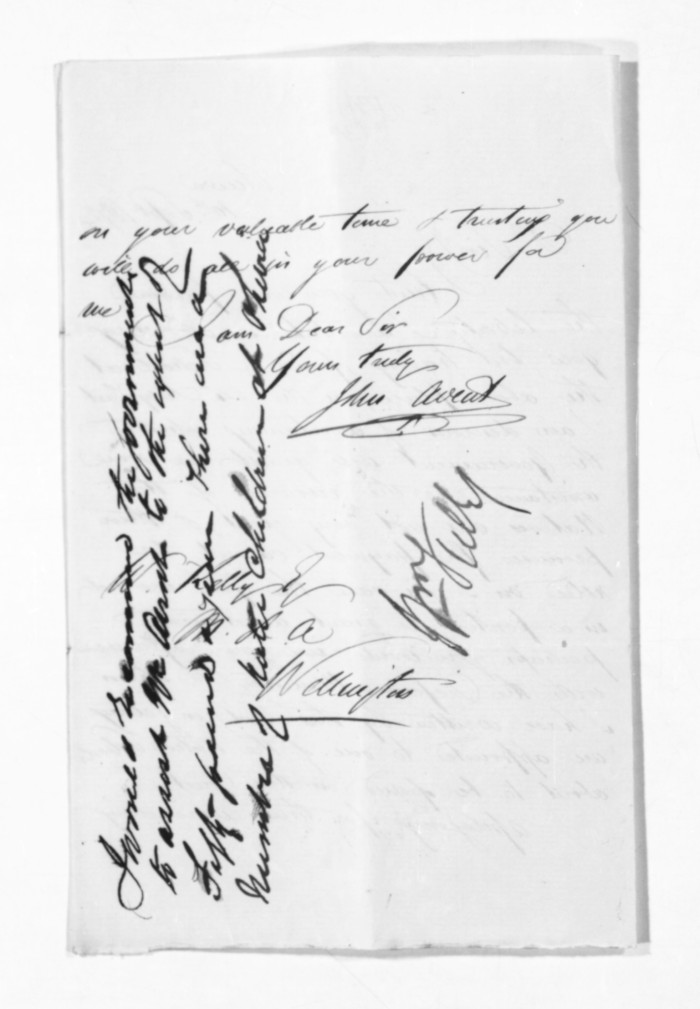 on your valuable time & trusting you
will do all in your power for
me
I am Dear Sir
Yours truly
John Avent
Wm Kelly Esq
M. H. A
Wellington
I would recommend the government
to assist Mr Avent to the extent of
Fifty pounds a year There are a
number of native Children at
Wm Kelly